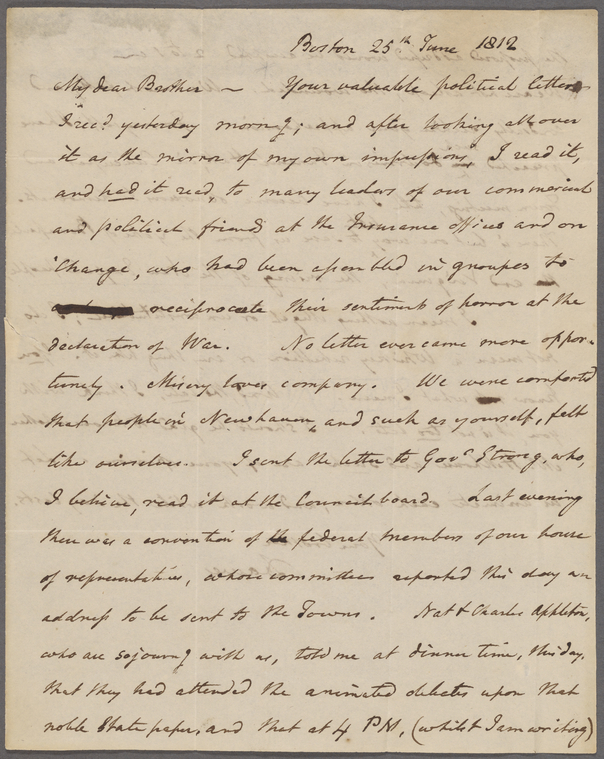 Boston 25th June 1812
My dear Brother — Your valuable political letter
I recd yesterday morng; and after looking all over
it as the mirror of my own impressions, I read it,
and had it read, to many leaders of our commercial
and political friends at the Insurance offices and on
'Change, who had been assembled in groupes to
reciprocate their sentiments of horror at the
declaration of War. No letter ever came more oppor-
tunely. Misery loves company. We were comforted
that people in Newhaven, and such as yourself, felt
like ourselves. I sent the letter to Govr Strong, who,
I believe, read it at the Council board. Last evening
there was a convention of the federal members of our house
of representatives, whose committees reported this day an
address to be sent to the Towns. Nat & Charles Appleton,
who are sojourng with us, told me at dinner time, this day,
that they had attended the animated debates upon that
noble State paper, and that at 4 PM, (whilst I am writing)